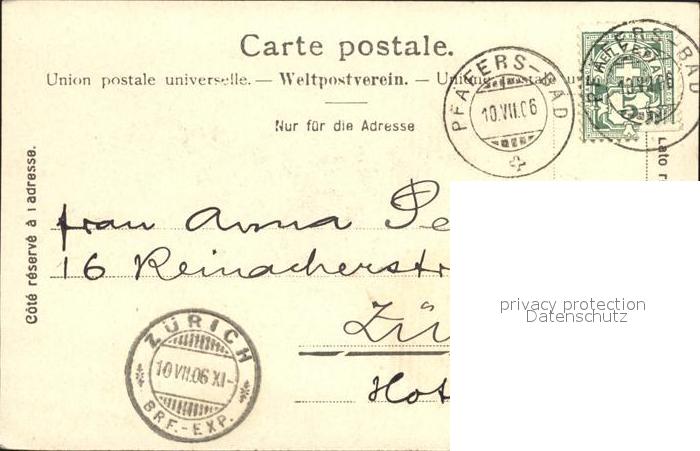 Carte postale.
Union postale universelle. — Weltpostverein. — Unione postale
Nur für die Adresse
PFÄFERS-BAD
10.VII.06
10.VII.06
BAD
HELVETIA
5
Côté réservé à l'adresse.
Lato r
frau Anna Pe
16 Reinacherstr
Zü
Hot
ZÜRICH
10 VII.06 XI-
BRF.-EXP.
privacy protection
Datenschutz